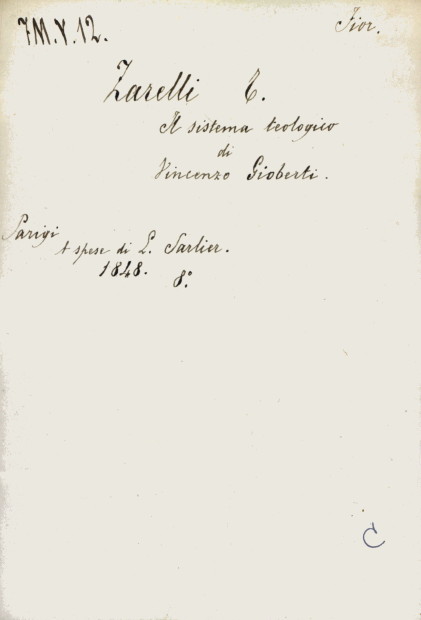 7M.V.12. Fior.
Zarelli T.
Il sistema teologico
di
Vincenzo Gioberti.
Parigi
A spese di L. Sarlier.
1848. 8.º
C